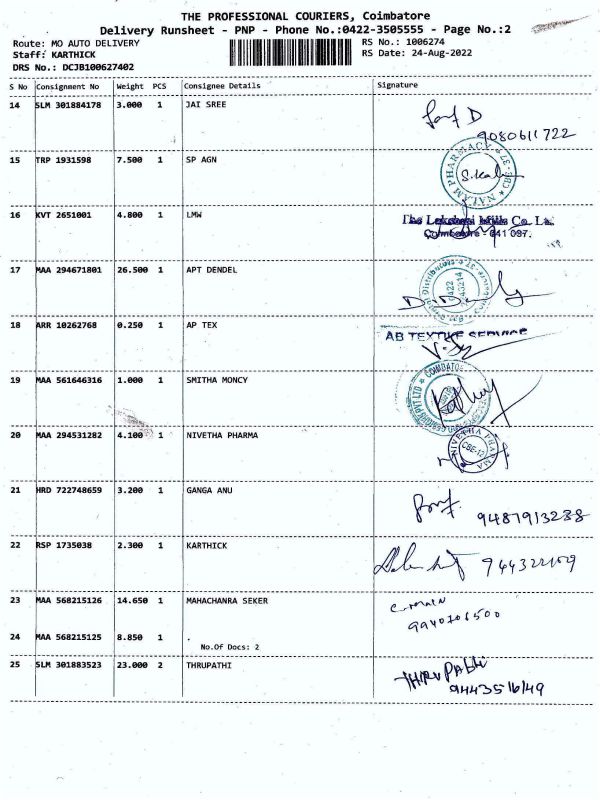 THE PROFESSIONAL COURIERS, Coimbatore
Delivery Runsheet - PNP - Phone No.:0422-3505555 - Page No.:2
Route: MO AUTO DELIVERY RS No.: 1006274
Staff: KARTHICK RS Date: 24-Aug-2022
DRS No.: DCJB100627402
S No Consignment No Weight PCS Consignee Details Signature
14 SLM 301884178 3.000 1 JAI SREE
9080611722
15 TRP 1931598 7.500 1 SP AGN
NALAM PHARMACY CBE-37
16 KVT 2651001 4.800 1 LMW
The Lakshmi Mills Co. Ltd.
Coimbatore - 641 037.
17 MAA 294671801 26.500 1 APT DENDEL
18 ARR 10262768 0.250 1 AP TEX
AB TEXTILE SERVICE
19 MAA 561646316 1.000 1 SMITHA MONCY
20 MAA 294531282 4.100 1 NIVETHA PHARMA
NIVETHA PHARMA CBE-12
21 HRD 722748659 3.200 1 GANGA ANU
9487913238
22 RSP 1735038 2.300 1 KARTHICK
23 MAA 568215126 14.650 1 MAHACHANRA SEKER
24 MAA 568215125 8.850 1 .
No.Of Docs: 2
25 SLM 301883523 23.000 2 THRUPATHI